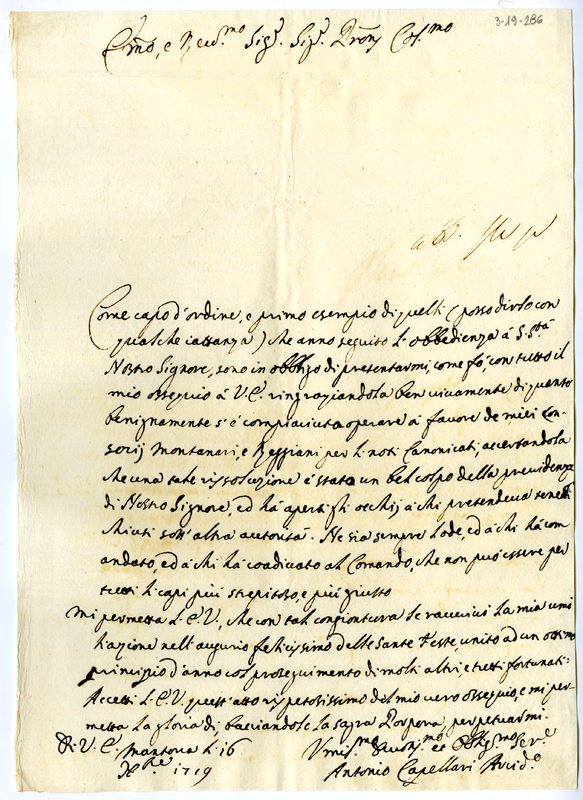 3-19-286
Em̃o, e Reu.mo Sig.r Sig.r Pron̄ Col.mo
Come capo d'ordine, e primo esempio di quelli (posso dirlo con
qualche iattanza) che anno seguito l'obbedienza à S. Stà
Nostro Signore, sono in obbligo di presentarmi, come fò, con tutto il
mio ossequio à V.E. ringraziandola ben viuamente di quanto
benignamente s'è compiaciuta operare à fauore de miei Con-
sorij Montanari, e Reggiani per li noti Canonicati, accertandola
che una tale rissoluzione è stata un bel colpo della prouidenza
di Nostro Signore, ed hà aperti gli occhij à chi pretendeua tenerli
chiusi sott'altra autorità. Ne sia sempre lode, ed à chi hà com
andato, ed à chi hà coadiuuato al Comando, che non può essere per
tutti li capi più strepitoso, e più giusto
Mi permetta l'E.V., che con tal congiontura le raccorui la mia umi
liazione nell'augurio felicissimo delle Sante Feste, unito ad un ottimo
principio d'anno col proseguimento di molti altri, e tutti fortunati:
Accetti l'E.V. quest'atto rispetosissimo del mio uero ossequio, e mi per-
metta la gloria di, bacciandole la sagra Porpora, perpetuarmi.
Di V.E. Mantoua li 16
X.re 1719
Vmis.mo Diuotis.mo et Obblig.mo Ser.e
Antonio Capellari Arcid.o